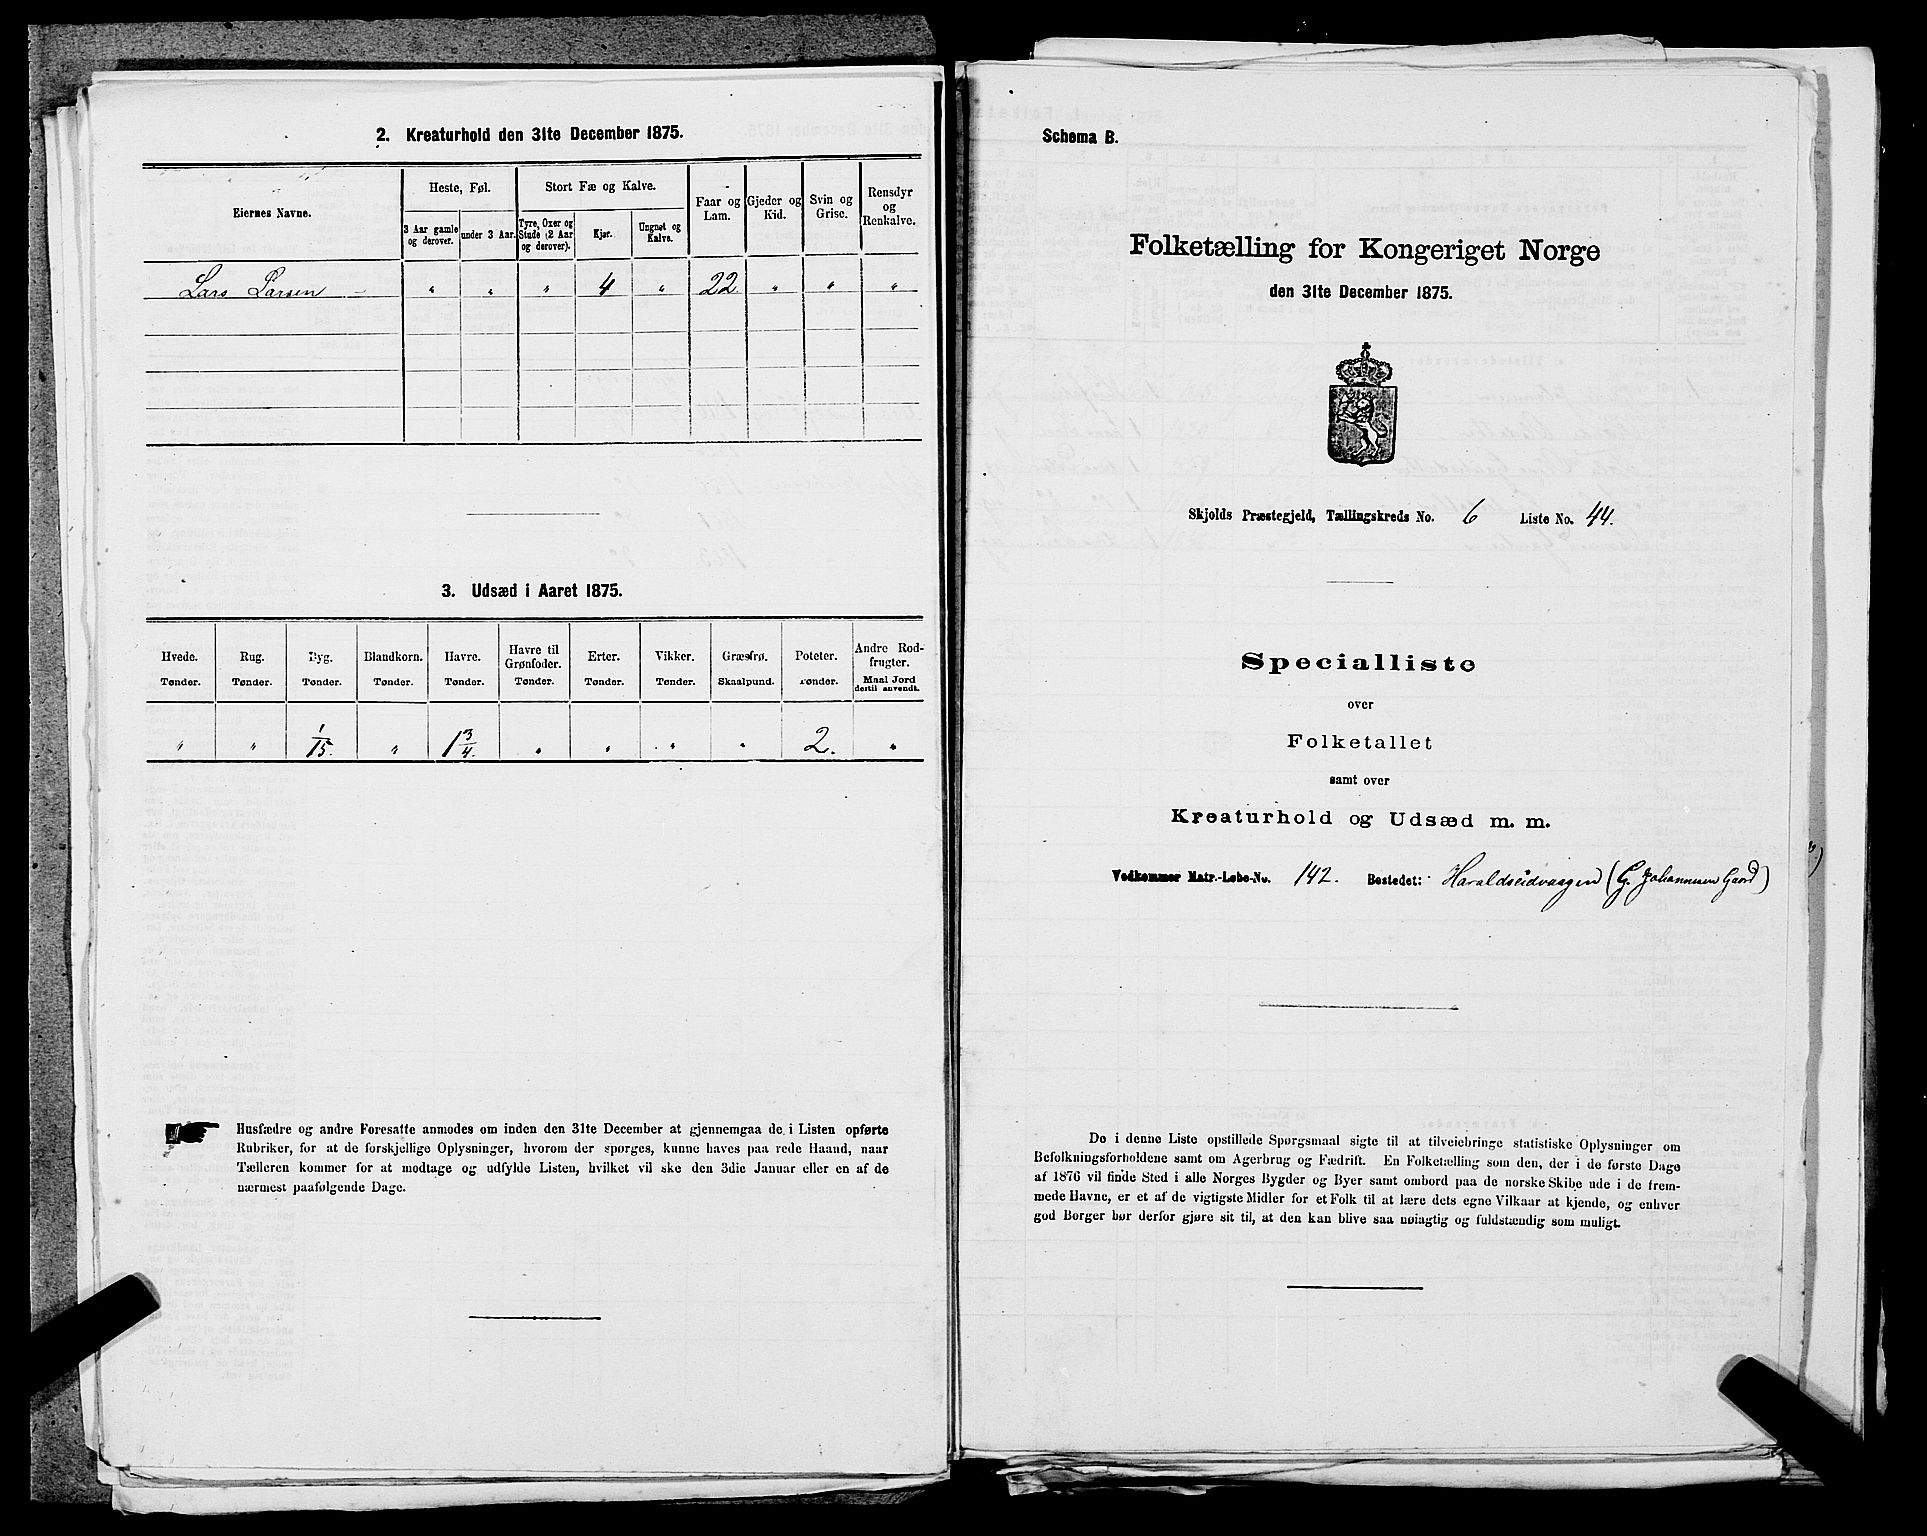 2. Kreaturhold den 31te December 1875.
Eiernes Navne.
Heste, Føl.
Stort Fæ og Kalve.
Faar og Lam.
Gjeder og Kid.
Svin og Grise.
Rensdyr og Renkalve.
3 Aar gamle og derover.
under 3 Aar.
Tyre, Oxer og Stude (2 Aar og derover).
Kjør.
Ungnøt og Kalve.
Lars Larsen - " " " 4 " 22 " " "
3. Udsæd i Aaret 1875.
Hvede. Rug. Byg. Blandkorn. Havre. Havre til Grønfoder. Erter. Vikker. Græsfrø. Poteter. Andre Rodfrugter.
Tønder. Tønder. Tønder. Tønder. Tønder. Tønder. Tønder. Tønder. Skaalpund. Tønder. Maal Jord dertil anvendt.
" " 1/15. " 1 3/4. " " " " 2. "
Husfædre og andre Foresatte anmodes om inden den 31te December at gjennemgaa de i Listen opførte
Rubriker, for at de forskjellige Oplysninger, hvorom der spørges, kunne haves paa rede Haand, naar
Tælleren kommer for at modtage og udfylde Listen, hvilket vil ske den 3die Januar eller en af de
nærmest paafølgende Dage.
Schema B.
Folketælling for Kongeriget Norge
den 31te December 1875.
Skjolds Præstegjeld, Tællingskreds No. 6 Liste No. 44.
Specialliste
over
Folketallet
samt over
Kreaturhold og Udsæd m. m.
Vedkommer Matr.-Løbe-No. 142. Bostedet: Haraldseidvaagen (G. Johannesen Gaard)
De i denne Liste opstillede Spørgsmaal sigte til at tilveiebringe statistiske Oplysninger om
Befolkningsforholdene samt om Agerbrug og Fædrift. En Folketælling som den, der i de første Dage
af 1876 vil finde Sted i alle Norges Bygder og Byer samt ombord paa de norske Skibe ude i de frem-
mede Havne, er et af de vigtigste Midler for et Folk til at lære dets egne Vilkaar at kjende, og enhver
god Borger bør derfor gjøre sit til, at den kan blive saa nøiagtig og fuldstændig som muligt.